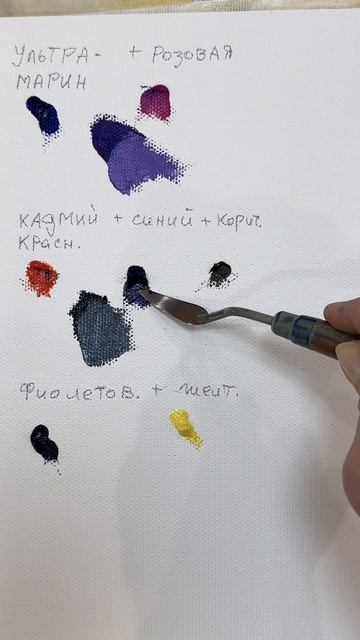 УЛЬТРА- + РОЗОВАЯ
МАРИН
КАДМИЙ + СИНИЙ + КОРИЧ.
КРАСН.
ФИОЛЕТОВ. + ЖЕЛТ.